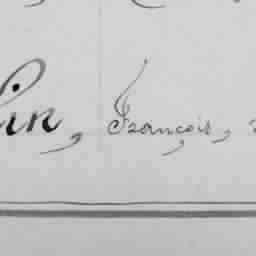 in, François,